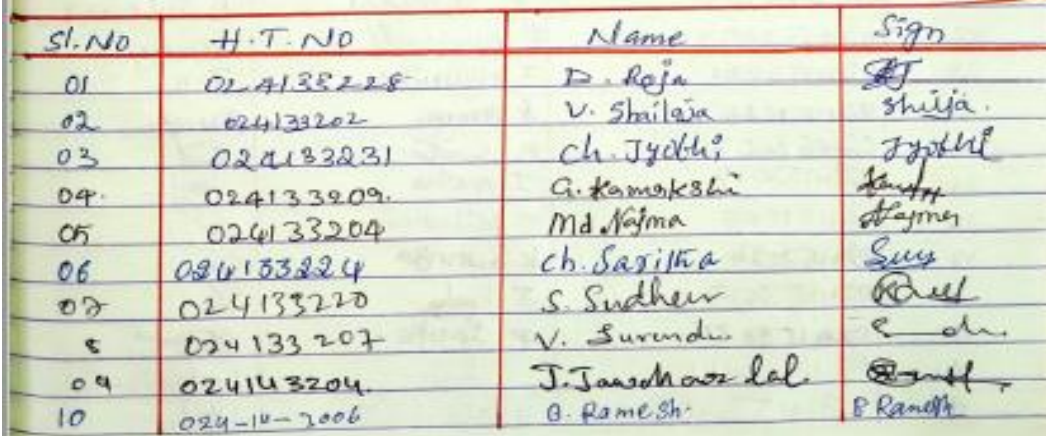 Sl.No H.T.NO Name Sign
01 024133228 D. Roja
02 024133202 V. Shailaja Shilja.
03 024133231 Ch. Jyothi Jyothi
04. 024133209. G. Kamakshi
05 024133204 Md Najma Najma
06 024133224 Ch. Saritha
07 024133220 S. Sudheer
8 024133207 V. Surendr.
09 024143204. J. Jawahar lal.
10 024-14-2006 B. Ramesh. B Ramesh